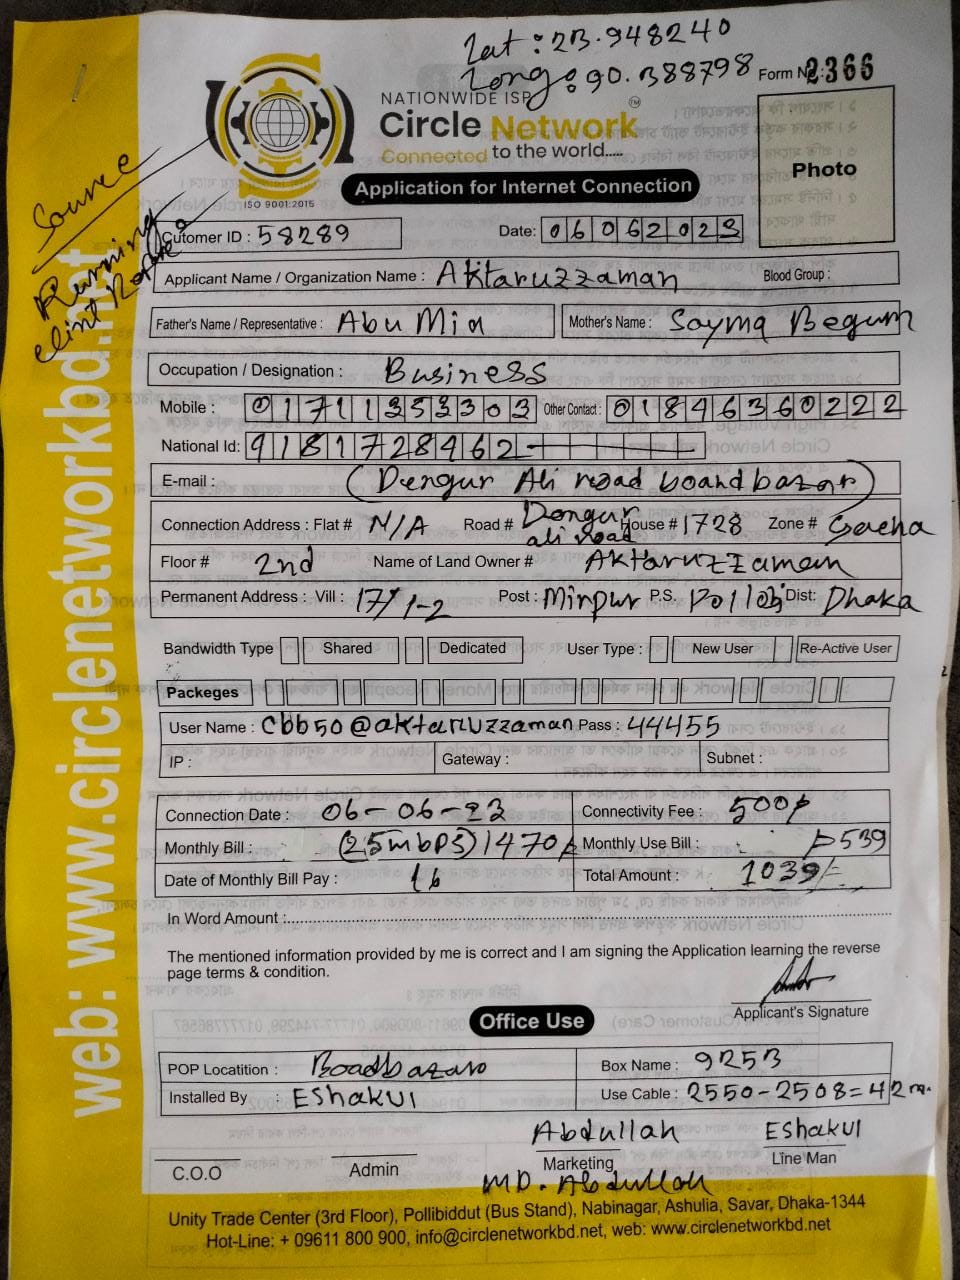 Lat: 23.948240
Long: 90.388798
Form No: 2366
NATIONWIDE ISP
Circle Network
TM
Connected to the world.....
ISO 9001:2015
Application for Internet Connection
Photo
Source
Running
Clint Reffer
Cutomer ID : 58289 Date: 06062023
Applicant Name / Organization Name : Aktaruzzaman Blood Group :
Father's Name / Representative : Abu Mia Mother's Name : Sayma Begum
Occupation / Designation : Business
Mobile : 01711353303 Other Contact : 01846360222
National Id: 9181728462
E-mail : (Dengur Ali road board bazar)
Connection Address : Flat # N/A Road # Dongur ali road House # 1728 Zone # Gacha
Floor # 2nd Name of Land Owner # Aktaruzzaman
Permanent Address : Vill : 17/1-2 Post : Mirpur P.S. Pollobi Dist: Dhaka
Bandwidth Type Shared Dedicated User Type : New User Re-Active User
Packeges
User Name : cbb50@aktaruzzaman Pass : 44455
IP : Gateway : Subnet :
Connection Date : 06-06-23 Connectivity Fee : 500/-
Monthly Bill : (25mbps) 1470/- Monthly Use Bill : 539
Date of Monthly Bill Pay : Total Amount : 1039/-
In Word Amount :
The mentioned information provided by me is correct and I am signing the Application learning the reverse
page terms & condition.
Applicant's Signature
Office Use
POP Locatition : Boadbazaro Box Name : 9253
Installed By : EShakul Use Cable : 2550-2508=42m.
Abdullah EShakul
C.O.O Admin Marketing Line Man
MD. Abdullah
Unity Trade Center (3rd Floor), Pollibiddut (Bus Stand), Nabinagar, Ashulia, Savar, Dhaka-1344
Hot-Line: + 09611 800 900, info@circlenetworkbd.net, web: www.circlenetworkbd.net
web: www.circlenetworkbd.net